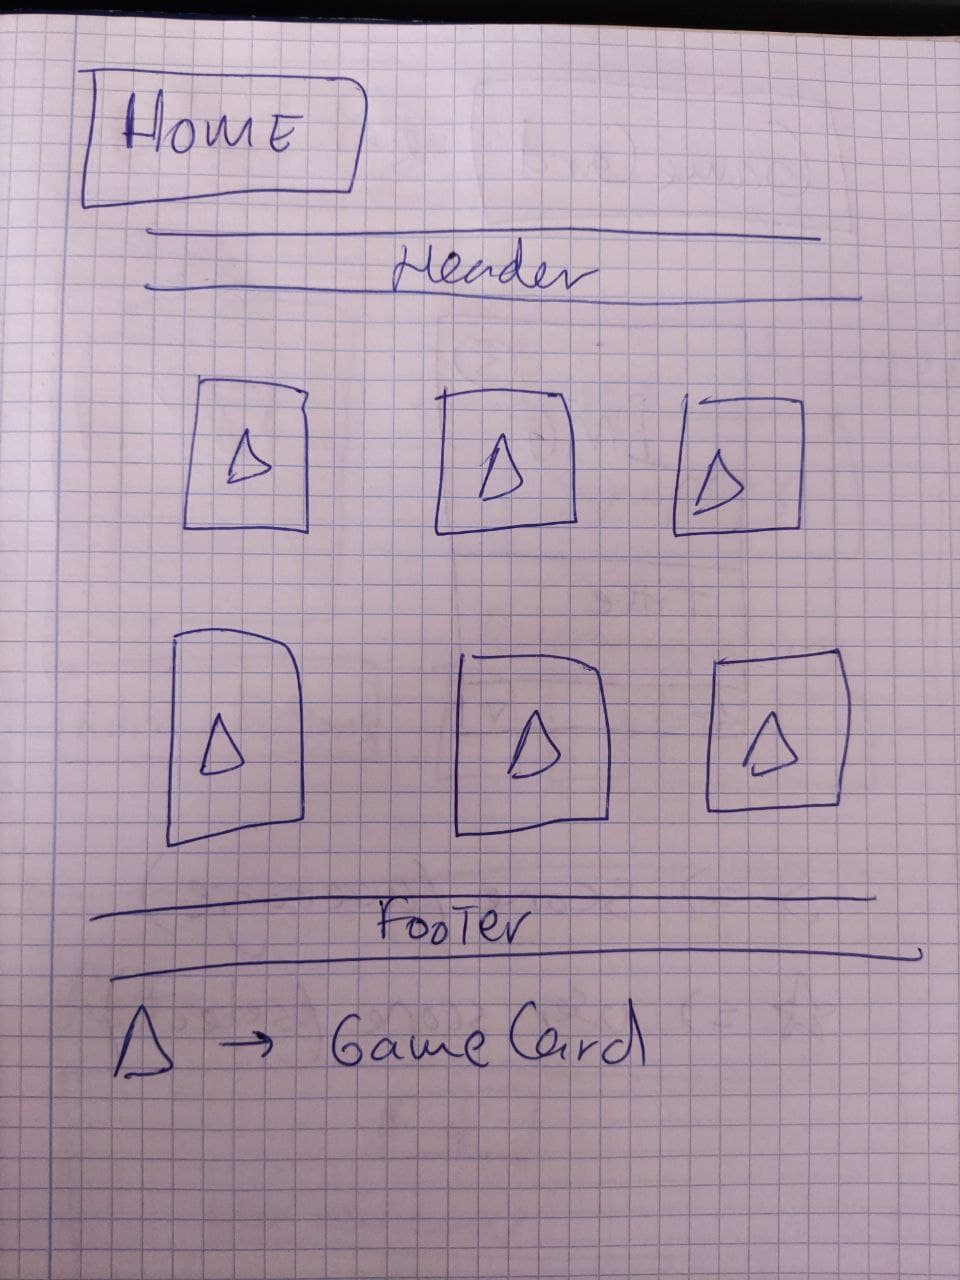 HOME
Header
Footer
Δ → Game Card